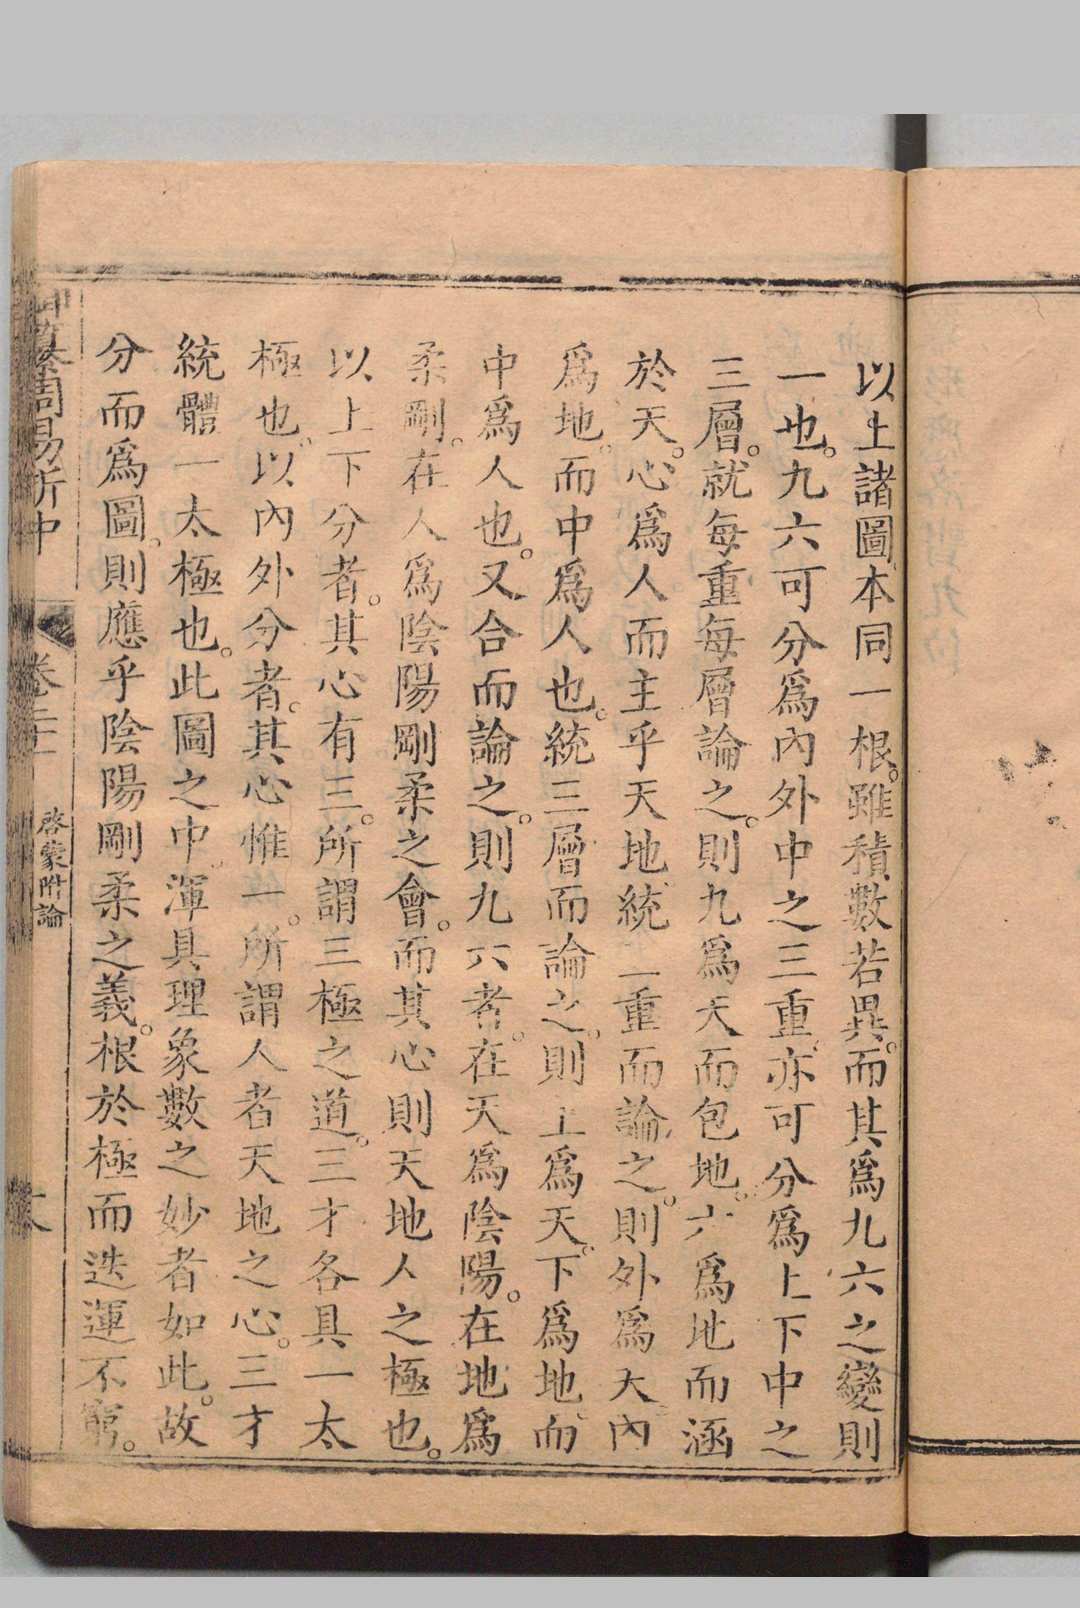 以上諸圖本同一根。雖積數若異。而其爲九六之變則
一也。九六可分爲內外中之三重。亦可分爲上下中之
三層。就每重每層論之。則九爲天而包地。六爲地而涵
於天。心爲人而主乎天地。統三重而論之。則外爲天。內
爲地。而中爲人也。統三層而論之。則上爲天。下爲地。而
中爲人也。又合而論之。則九六者。在天爲陰陽。在地爲
柔剛。在人爲陰陽剛柔之會。而其心則天地人之極也。
以上下分者。其心有三。所謂三極之道。三才各具一太
極也。以內外分者。其心惟一。所謂人者天地之心。三才
統體一太極也。此圖之中。渾具理象數之妙者如此。故
分而爲圖。則應乎陰陽剛柔之義。根於極而迭運不窮。
御纂周易折中
卷二十一
啓蒙附論